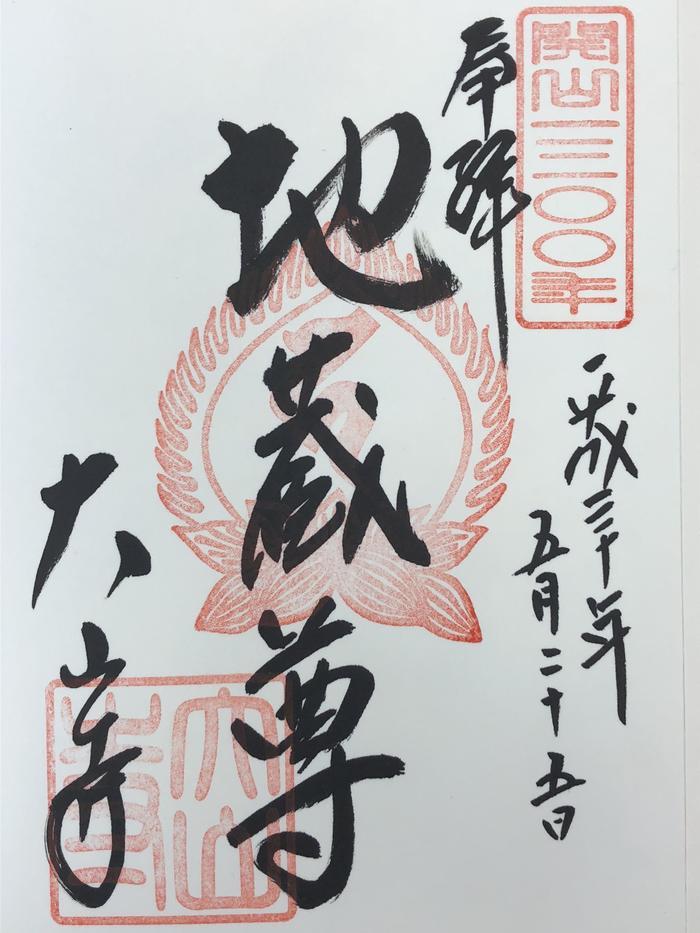 開山一三〇〇年
奉拝
平成三十年
五月二十五日
地蔵尊
大山寺